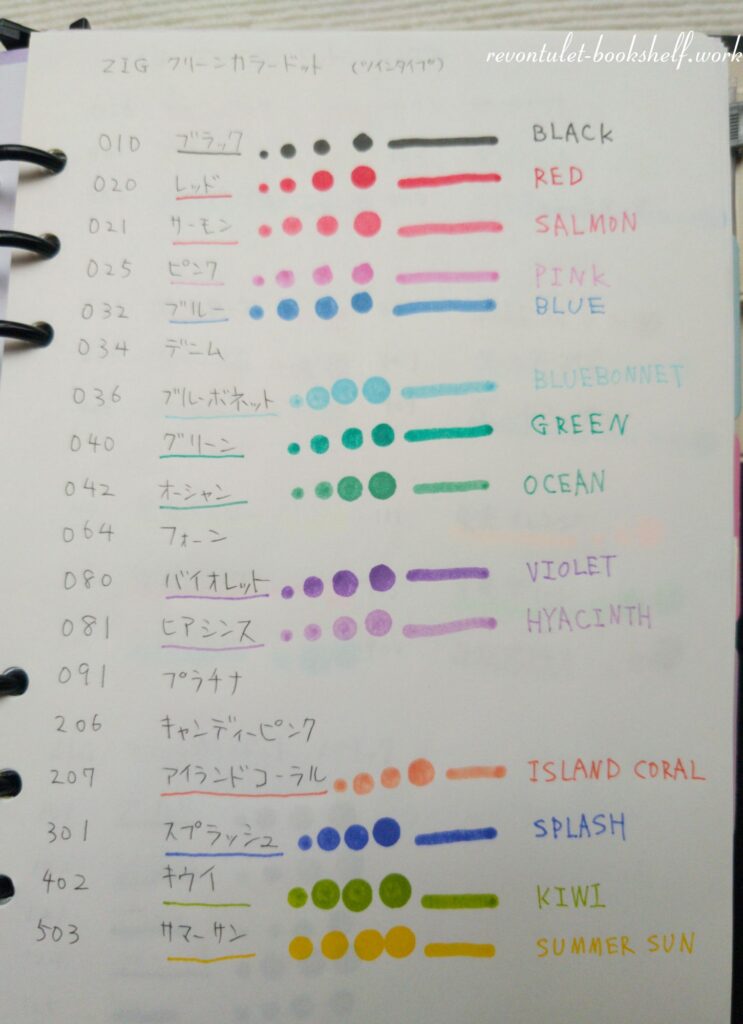 revontulet-bookshelf.work
ZIG クリーンカラードット (ツインタイプ)
010 ブラック BLACK
020 レッド RED
021 サーモン SALMON
025 ピンク PINK
032 ブルー BLUE
034 デニム
036 ブルーボネット BLUEBONNET
040 グリーン GREEN
042 オーシャン OCEAN
064 フォーン
080 バイオレット VIOLET
081 ヒアシンス HYACINTH
091 プラチナ
206 キャンディーピンク
207 アイランドコーラル ISLAND CORAL
301 スプラッシュ SPLASH
402 キウイ KIWI
503 サマーサン SUMMER SUN